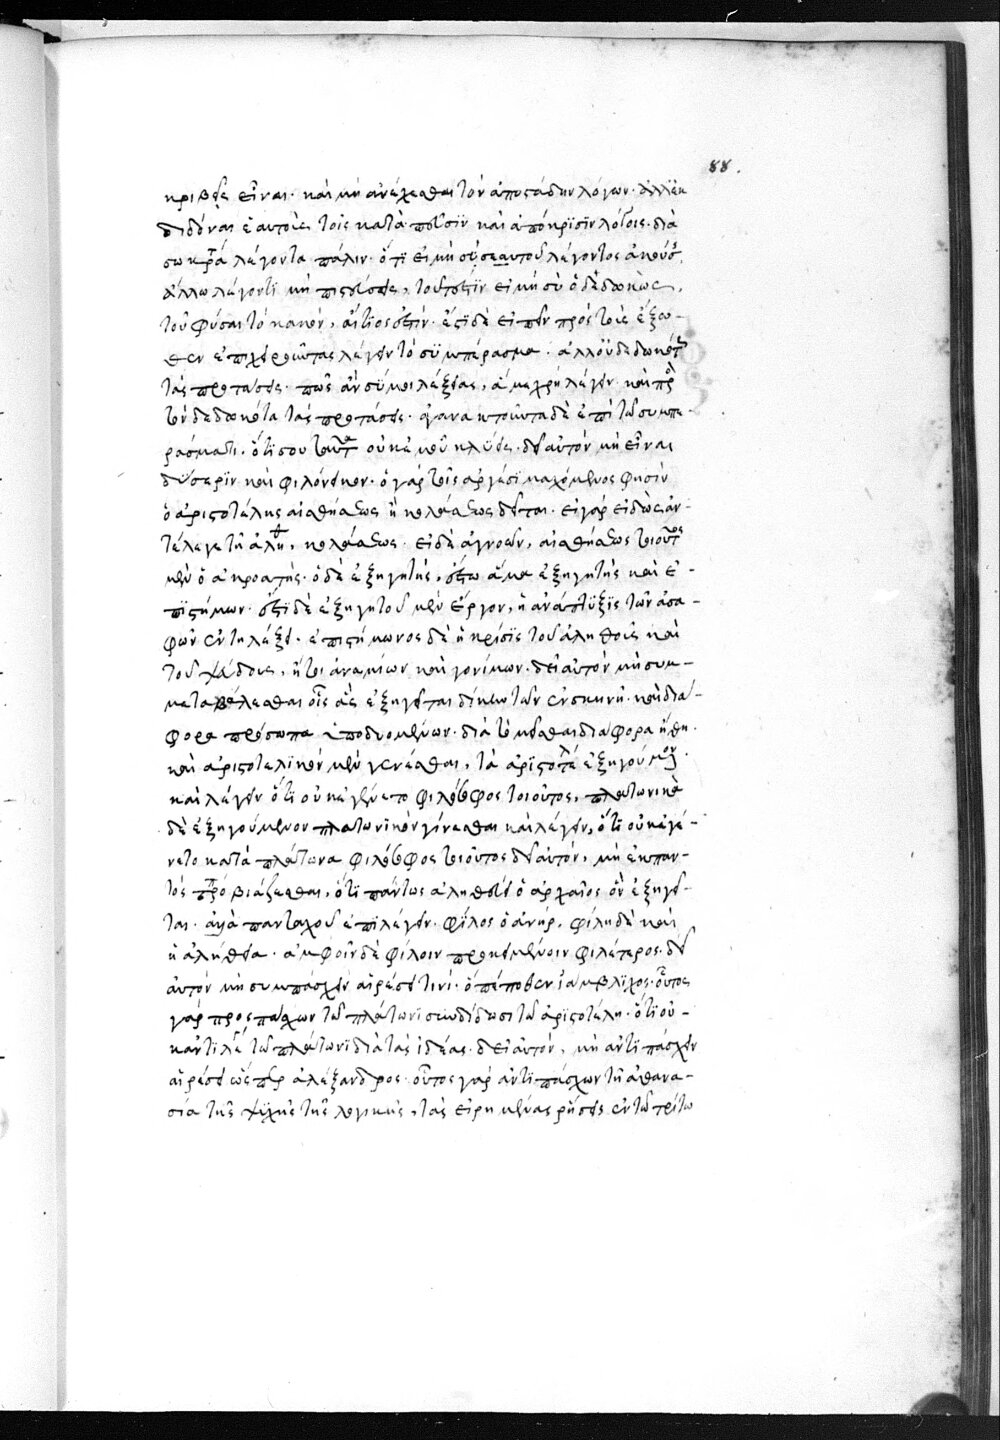 88.
κριβεῖς εἶναι· καὶ μὴ ἀνέχεσθαι τῶν ἀποστάδην λόγων· ἀλλ' ἐκ
διδόναι ἑαυτοὺς τοῖς κατὰ πεῦσιν καὶ ἀπόκρισιν λόγοις· διὰ
σωκρά λέγοντα πάλιν· ὅτι εἰ μὴ σὺ σεαυτοῦ λέγοντος ἀκούσ
ἄλλω λέγοντι μὴ πιστεύσης, τουτέστιν εἰ μὴ σὺ ὁ δεδωκὼς,
τοῦ φῦσαι τὸ κακὸν, αἴτιος ἐστίν· ἔστι δὲ εἰπεῖν πρὸς τοὺς ἔξω-
θεν ἐπιχειροῦντας λέγειν τὸ συμπέρασμα· ἀλλ' οὐ δεδωκότ
τὰς προτάσεις· πῶς ἂν σύ μοι λέξειας, ἁμὲ χρὴ λέγειν· καὶ πρ
τὸν δεδωκότα τὰς προτάσεις· ἀγανακτοῦντα δὲ ἐπὶ τῶ συμπε
ράσματι· ὅτι σου ταυτ οὐκ ἐμοῦ κλύεις· δεῖ αὐτὸν μὴ εἶναι
δύσεριν καὶ φιλόνεικον· ὁ γὰρ τοῖς ἀργέσι μαχόμενος φησὶν
ὁ ἀριστοτέλης αἰσθήσεως ἢ κολάσεως δεῖται· εἰ γὰρ εἰδὼς ἀν-
τέλεγε τῆ ἀλη, κολάσεως· εἰ δὲ ἀγνοῶν, αἰσθήσεως τοιοῦτ
μὲν ὁ ἀκροατής· ὁ δὲ ἐξηγητής, ἔστω ἅμα ἐξηγητὴς καὶ ἐ-
πιστήμων· ἔστι δὲ ἐξηγητοῦ μὲν ἔργον, ἡ ἀνάπτυξις τῶν ἀσα-
φῶν ἐν τῆ λέξει· ἐπιστήμονος δὲ ἡ κρίσις τοῦ ἀληθοῦς καὶ
τοῦ ψεύδους, ἤτοι ἀνεμαίων καὶ γονίμων· δεῖ αὐτὸν μὴ συμ-
μεταβάλλεσθαι οἷς ἂν ἐξηγεῖται δίκην τῶν ἐν σκηνῆ· καὶ διά-
φορα πρόσωπα ὑποδυομένων· διὰ τὸ μιμεῖσθαι διάφορα ἤθη·
καὶ ἀριστοτελικὸν μὲν γενέσθαι, τὰ ἀριστοτέλ ἐξηγούμενον·
καὶ λέγειν ὅτι οὐκ ἐγένετο φιλόσοφος τοιοῦτος, πλατωνικὰ
δὲ ἐξηγούμενον πλατωνικὸν γίνεσθαι καὶ λέγειν, ὅτι οὐκ ἐγέ-
νετο κατὰ πλάτωνα φιλόσοφος τοιοῦτος δεῖ αὐτὸν, μὴ ἐκ παν-
τὸς τρό βιάζεσθαι, ὅτι πάντως ἀληθεύει ὁ ἀρχαῖος ὃν ἐξηγεῖ-
ται· ἀλλὰ πανταχοῦ ἐπιλέγειν· φίλος ὁ ἀνήρ, φίλη δὲ καὶ
ἡ ἀλήθεια· ἀμφοῖν δὲ φίλοιν προκειμένοιν φιλέτερος· δεῖ
αὐτὸν μὴ συμπάσχειν αἱρέσει τινί· ὃ πέπονθεν ἰάμβλιχος· οὗτος
γὰρ προσπάσχων τῶ πλάτωνι συνδίδωσι τῶ ἀριστοτέλη· ὅτι οὐ-
κ ἀντιλέ τῶ πλάτωνι διὰ τὰς ἰδέας· δεῖ αὐτὸν, μὴ ἀντιπάσχειν
αἱρέσει ὥσπερ ἀλέξανδρος· οὗτος γὰρ ἀντιπάσχων τῆ ἀθανα-
σία τῆς ψυχῆς τῆς λογικῆς, τὰς εἰρημένας ῥήσεις ἐν τῶ τρίτω